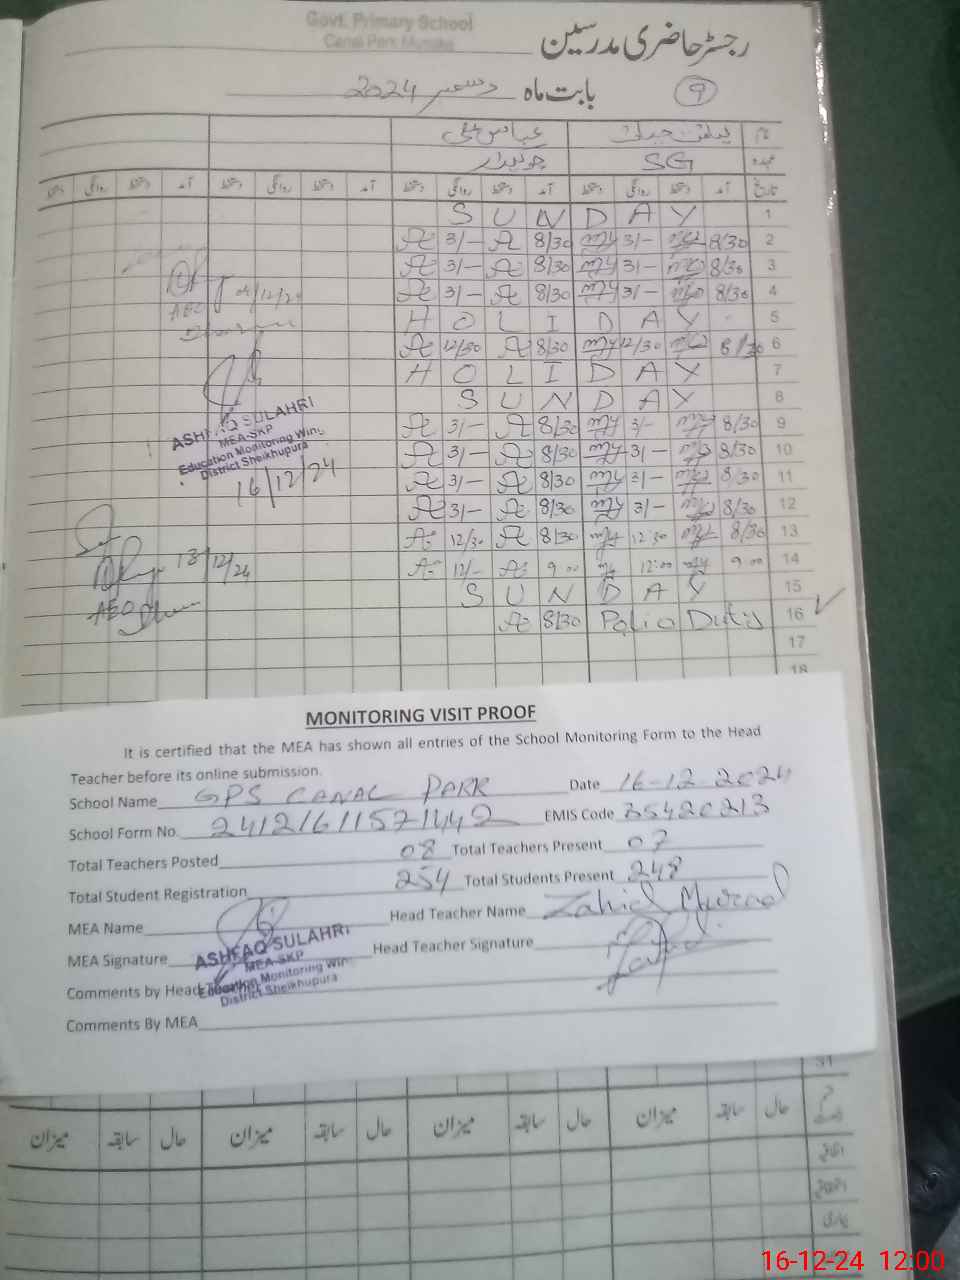 Govt. Primary School
Canal Park
رجسٹر حاضری مدرسین
بابت ماہ دسمبر 2024
9
نام
عہدہ SG چوکیدار
تاریخ آمد دستخط روانگی دستخط آمد دستخط روانگی دستخط آمد دستخط روانگی دستخط آمد دستخط روانگی دستخط
SUNDAY 1
3/- 8/30 3/- 8/30 2
3/- 8/30 3/- 8/30 3
3/- 8/30 3/- 8/30 4
HOLIDAY 5
12/30 8/30 12/30 8/30 6
HOLIDAY 7
SUNDAY 8
3/- 8/30 3/- 8/30 9
3/- 8/30 3/- 8/30 10
3/- 8/30 3/- 8/30 11
3/- 8/30 3/- 8/30 12
12/30 8/30 12:30 8/30 13
12/- 9 00 12:00 9 00 14
SUNDAY 15
8/30 Polio Duty 16
17
18
04/12/24
AEO
ASHFAQ SULAHRI
MEA-SKP
Education Monitoring Wing
District Sheikhupura
16/12/24
13/12/24
AEO
MONITORING VISIT PROOF
It is certified that the MEA has shown all entries of the School Monitoring Form to the Head
Teacher before its online submission.
School Name GPS CANAL PARK Date 16-12-2024
School Form No. 24121611571442 EMIS Code 35420213
Total Teachers Posted 08 Total Teachers Present 07
Total Student Registration 254 Total Students Present 248
MEA Name Head Teacher Name Zahid Murad
MEA Signature Head Teacher Signature
ASHFAQ SULAHRI
MEA-SKP
Education Monitoring Wing
District Sheikhupura
Comments by Head
Comments By MEA
31
حال سابقہ میزان حال سابقہ میزان حال سابقہ میزان حال سابقہ میزان
16-12-24 12:00